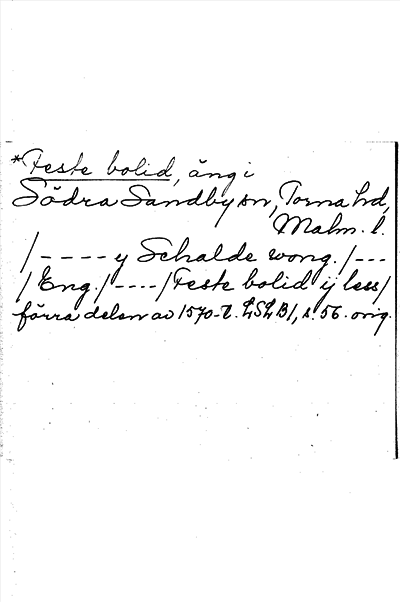 *Feste bolid, äng i
Södra Sandby sn, Torna hd,
Malm. l.
/---- y Schalde wong. /---
/ Eng. / ---- / Feste bolid ij less /
förra delen av 1570-t. LSLB1, s. 56. orig.